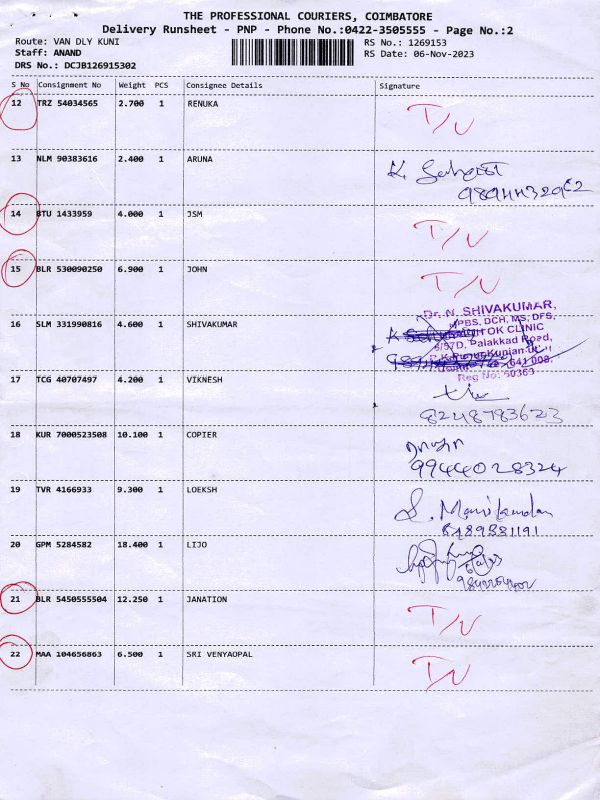 THE PROFESSIONAL COURIERS, COIMBATORE
Delivery Runsheet - PNP - Phone No.:0422-3505555 - Page No.:2
Route: VAN DLY KUNI RS No.: 1269153
Staff: ANAND RS Date: 06-Nov-2023
DRS No.: DCJB126915302
S No Consignment No Weight PCS Consignee Details Signature
12 TRZ 54034565 2.700 1 RENUKA T/U
13 NLM 90383616 2.400 1 ARUNA K.
14 BTU 1433959 4.000 1 JSM T/U
15 BLR 530090250 6.900 1 JOHN T/U
Dr. N. SHIVAKUMAR,
MBBS, DCH, MS, DFS,
16 SLM 331990816 4.600 1 SHIVAKUMAR OK CLINIC
Palakkad Road,
641 008.
Reg No: 50363
17 TCG 40707497 4.200 1 VIKNESH
8248783623
18 KUR 7000523508 10.100 1 COPIER
9944028324
19 TVR 4166933 9.300 1 LOEKSH S. Manikandan
20 GPM 5284582 18.400 1 LIJO
21 BLR 5450555504 12.250 1 JANATION T/U
22 MAA 104656863 6.500 1 SRI VENYAOPAL T/U